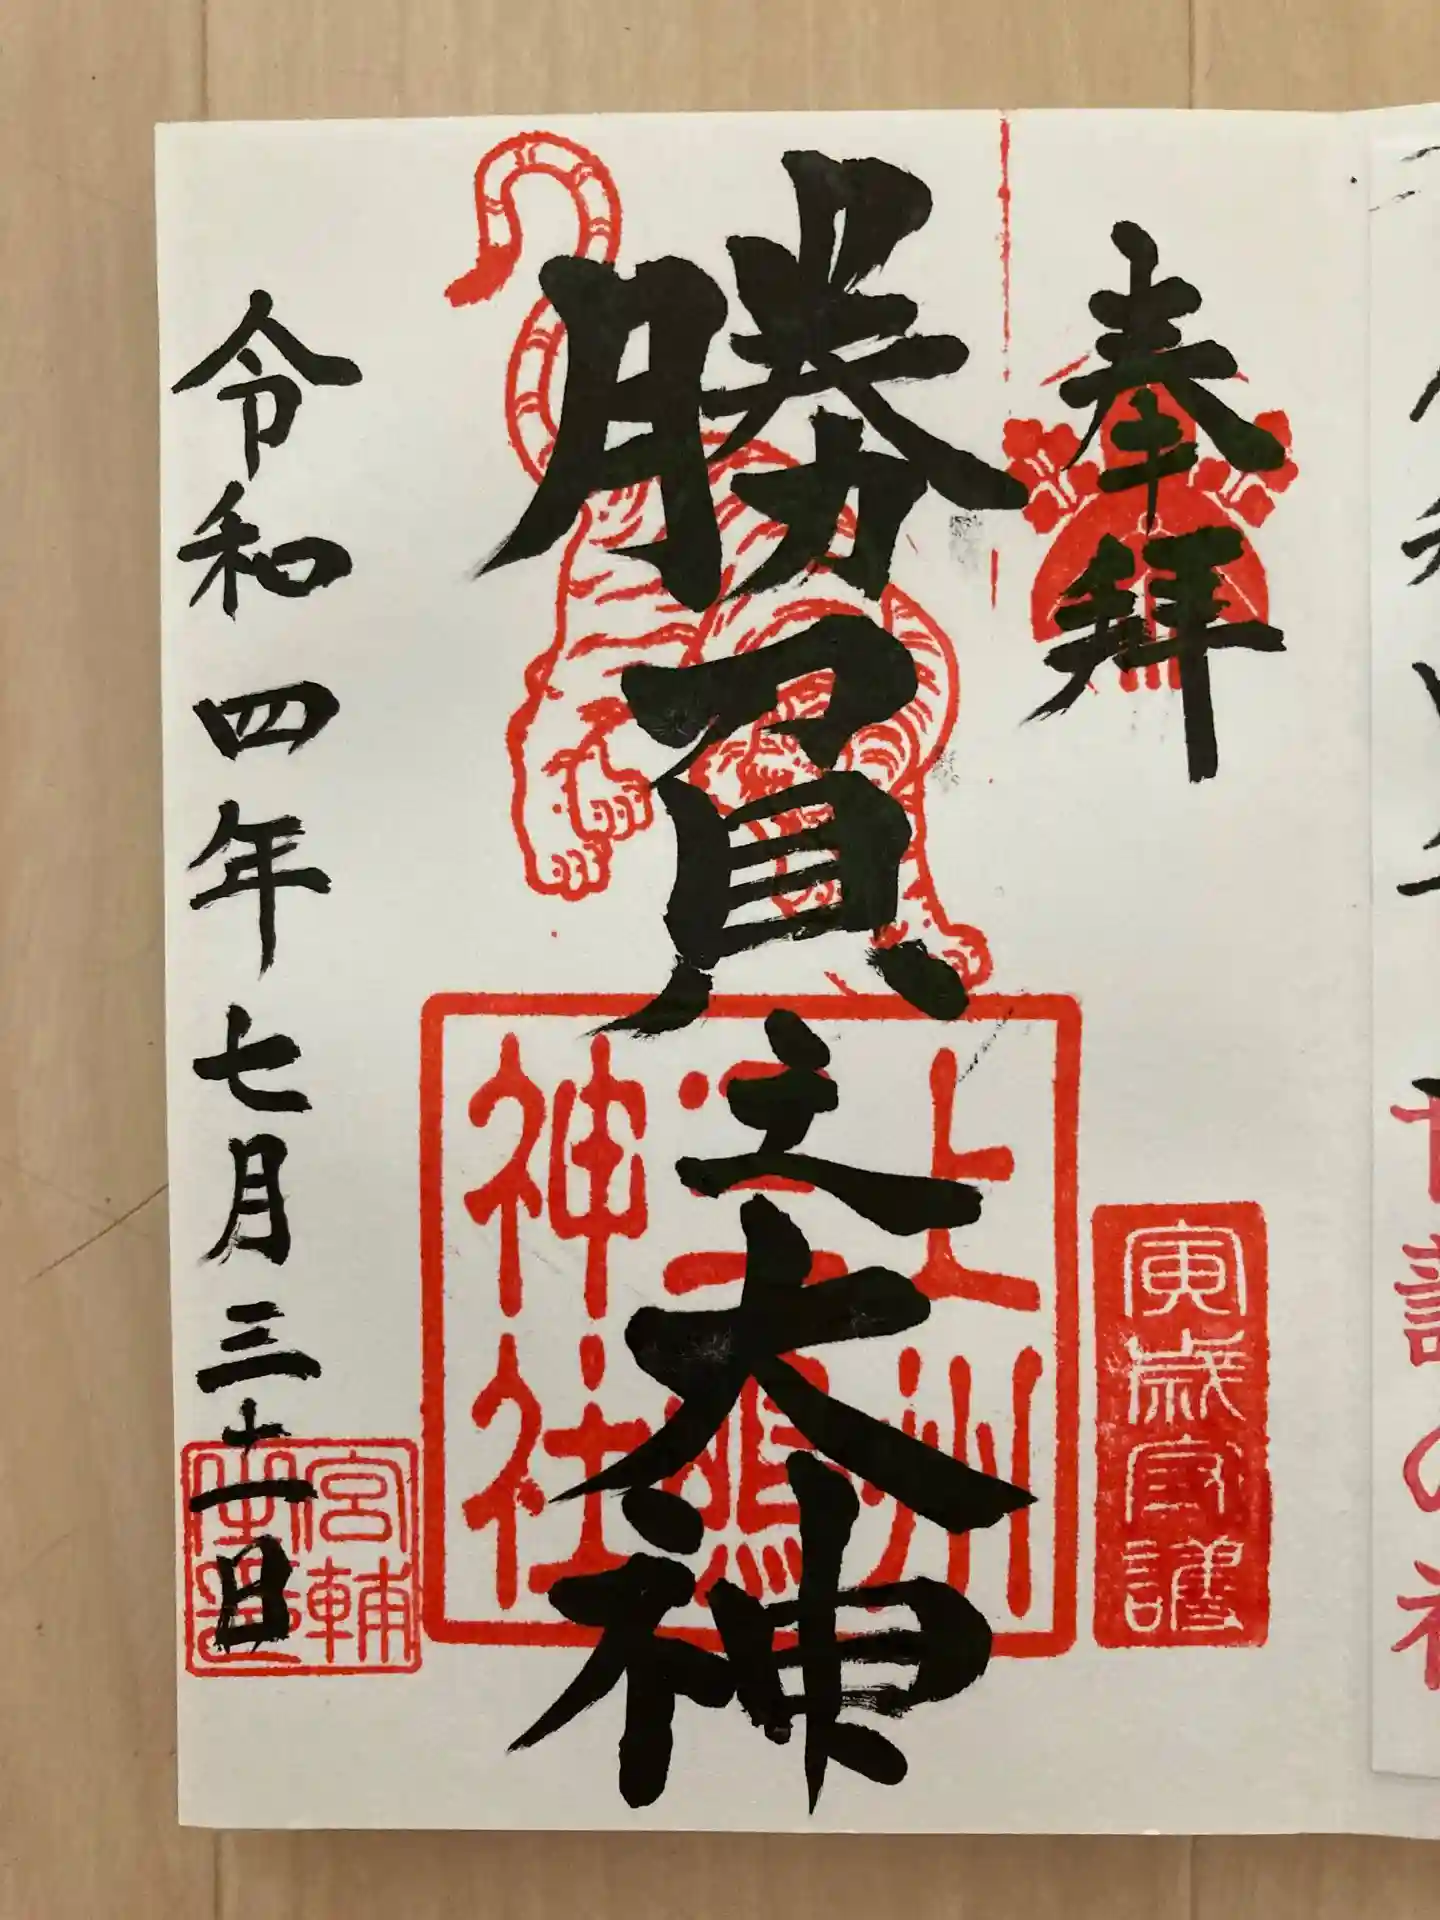 奉拝
寅歳守護
勝負之大神
上州
神社
令和四年七月三十一日
宮輔